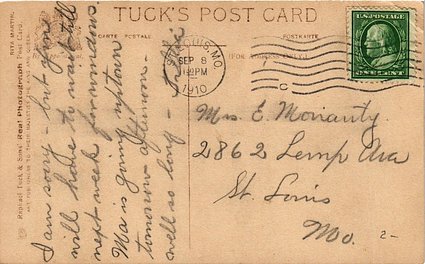 TUCK'S POST CARD
CARTE POSTALE
POSTKARTE
(FOR ADDRESS ONLY)
ST. LOUIS, MO.
SEP 8
PM
1910
C
U.S. POSTAGE
ONE CENT
RITA MARTIN.
Raphael Tuck & Sons' Real Photograph Post Card.
I am sorry - but you
will have to wait till
next week for windows
Ma is going my town
tomorrow afternoon -
well so long -
Mrs. E. Moriarity
2862 Lemp Ava
St. Louis
Mo.
2-